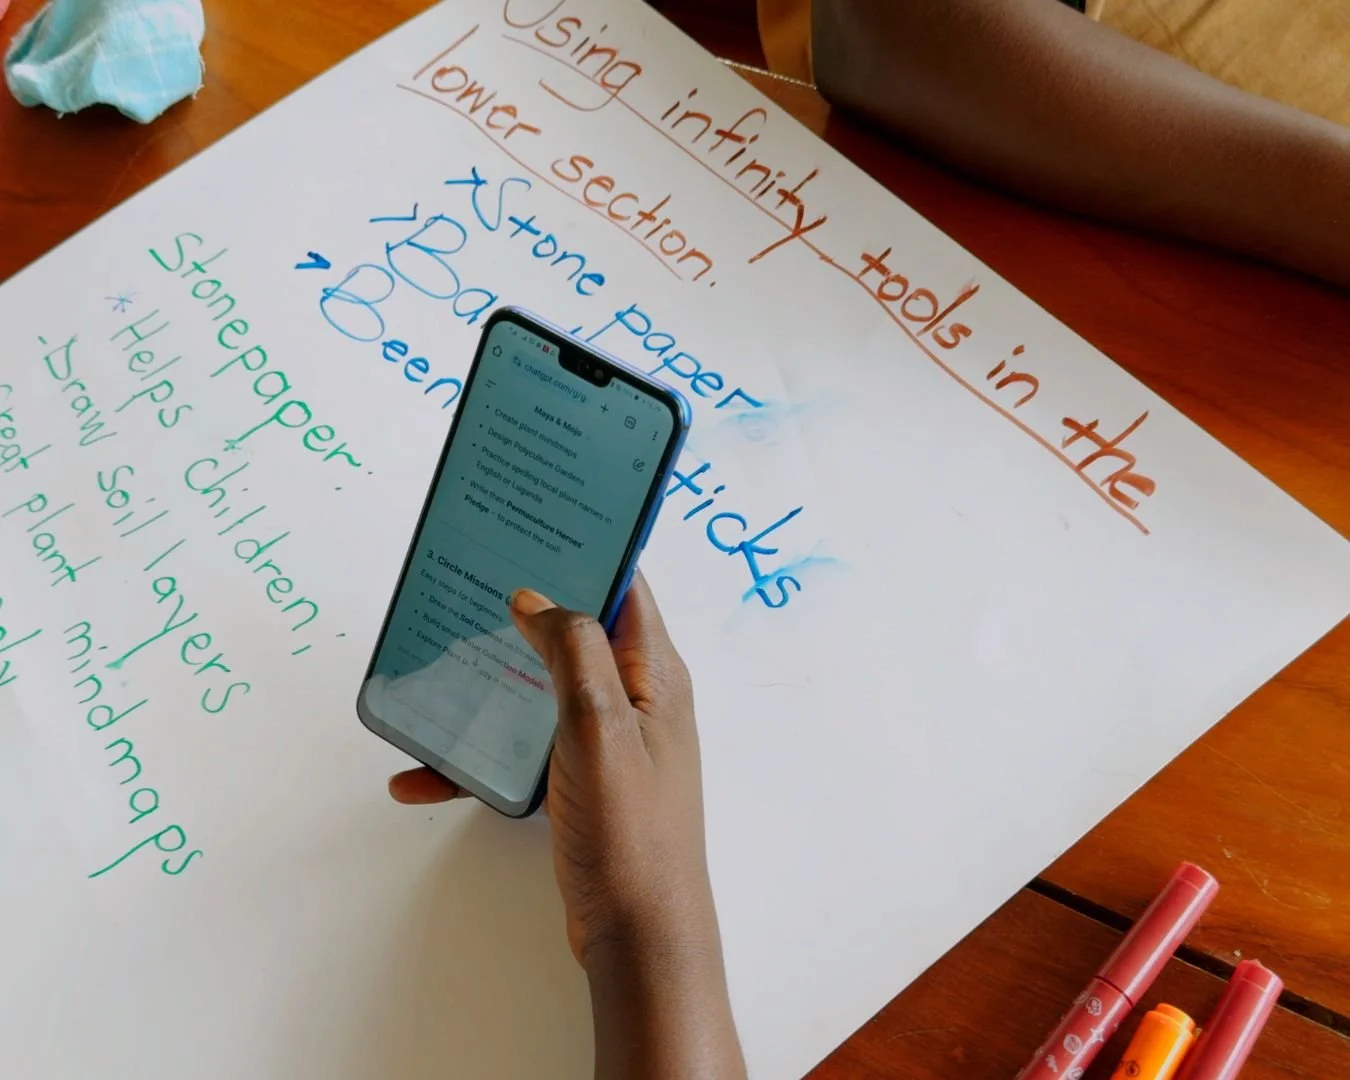 Using infinity tools in the
lower section.
Stone paper
Ba
ticks
Been
Stonepaper:
* Helps Children;
-Draw Soil layers
plant mindmaps
chatgpt.com/g/g
Maya & Mojo
• Create plant mindmaps
• Design Polyculture Gardens
• Practice spelling local plant names in
English or Luganda
• Write their Permaculture Heroes'
Pledge – to protect the soil!
3. Circle Missions
Easy steps for beginners
• Draw the Soil Cosmos on Stonepa
• Build small Water Collection Models
• Explore Plant